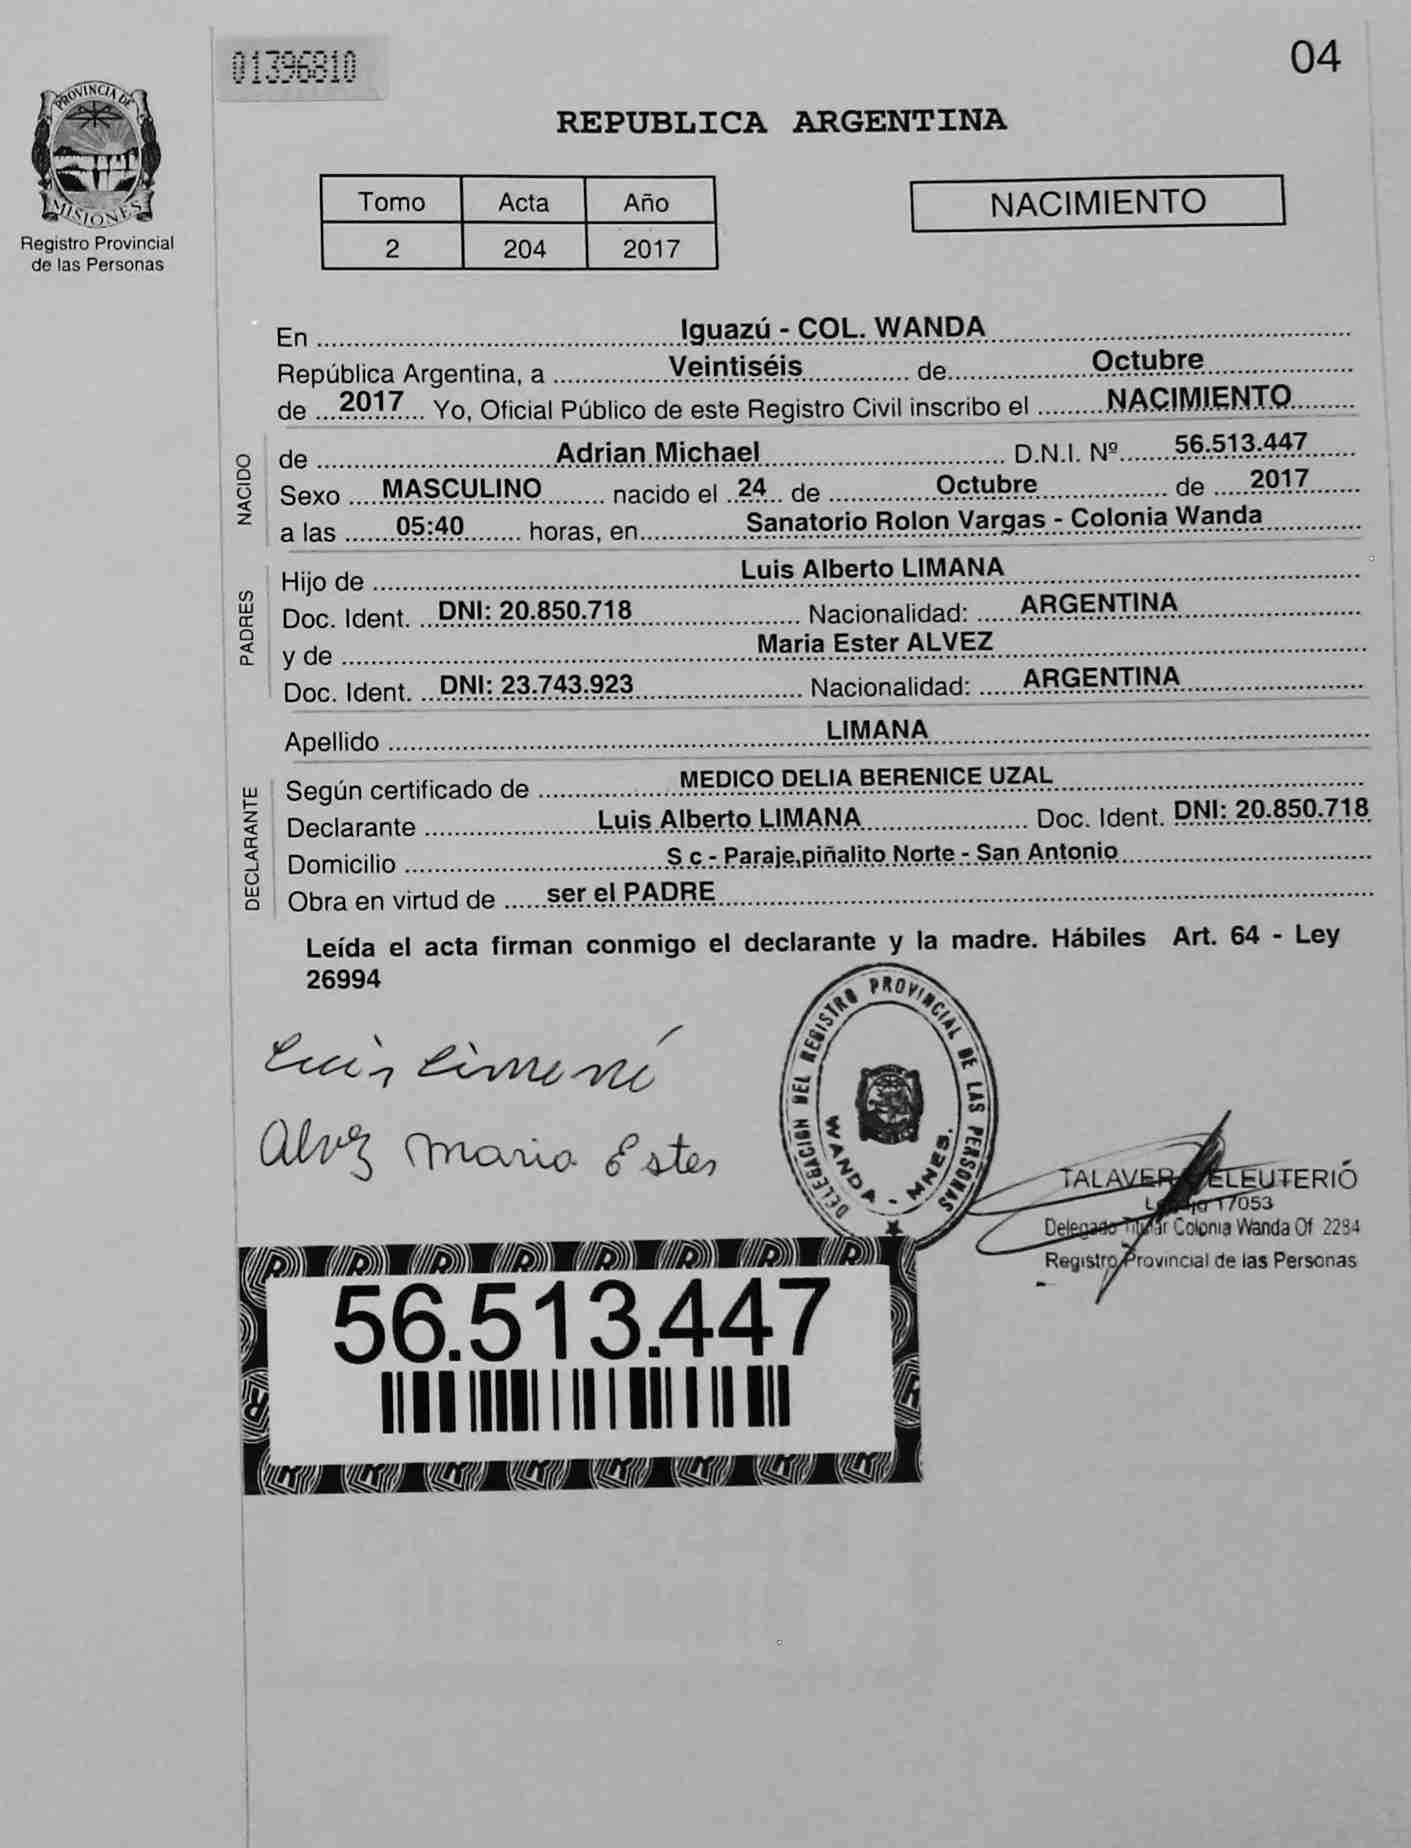 01396810
04
PROVINCIA DE
MISIONES
Registro Provincial
de las Personas
REPUBLICA ARGENTINA
Tomo Acta Año
2 204 2017
NACIMIENTO
En Iguazú - COL. WANDA
República Argentina, a Veintiséis de Octubre
de 2017 Yo, Oficial Público de este Registro Civil inscribo el NACIMIENTO
NACIDO
de Adrian Michael D.N.I. Nº 56.513.447
Sexo MASCULINO nacido el 24 de Octubre de 2017
a las 05:40 horas, en Sanatorio Rolon Vargas - Colonia Wanda
PADRES
Hijo de Luis Alberto LIMANA
Doc. Ident. DNI: 20.850.718 Nacionalidad: ARGENTINA
y de Maria Ester ALVEZ
Doc. Ident. DNI: 23.743.923 Nacionalidad: ARGENTINA
Apellido LIMANA
DECLARANTE
Según certificado de MEDICO DELIA BERENICE UZAL
Declarante Luis Alberto LIMANA Doc. Ident. DNI: 20.850.718
Domicilio S c - Paraje,piñalito Norte - San Antonio
Obra en virtud de ser el PADRE
Leída el acta firman conmigo el declarante y la madre. Hábiles Art. 64 - Ley
26994
Luis
Alvez Maria Ester
DELEGACION DEL REGISTRO PROVINCIAL DE LAS PERSONAS
WANDA - MNES.
ELEUTERIO
17053
Delegado Titular Colonia Wanda Of 2284
Registro Provincial de las Personas
56.513.447